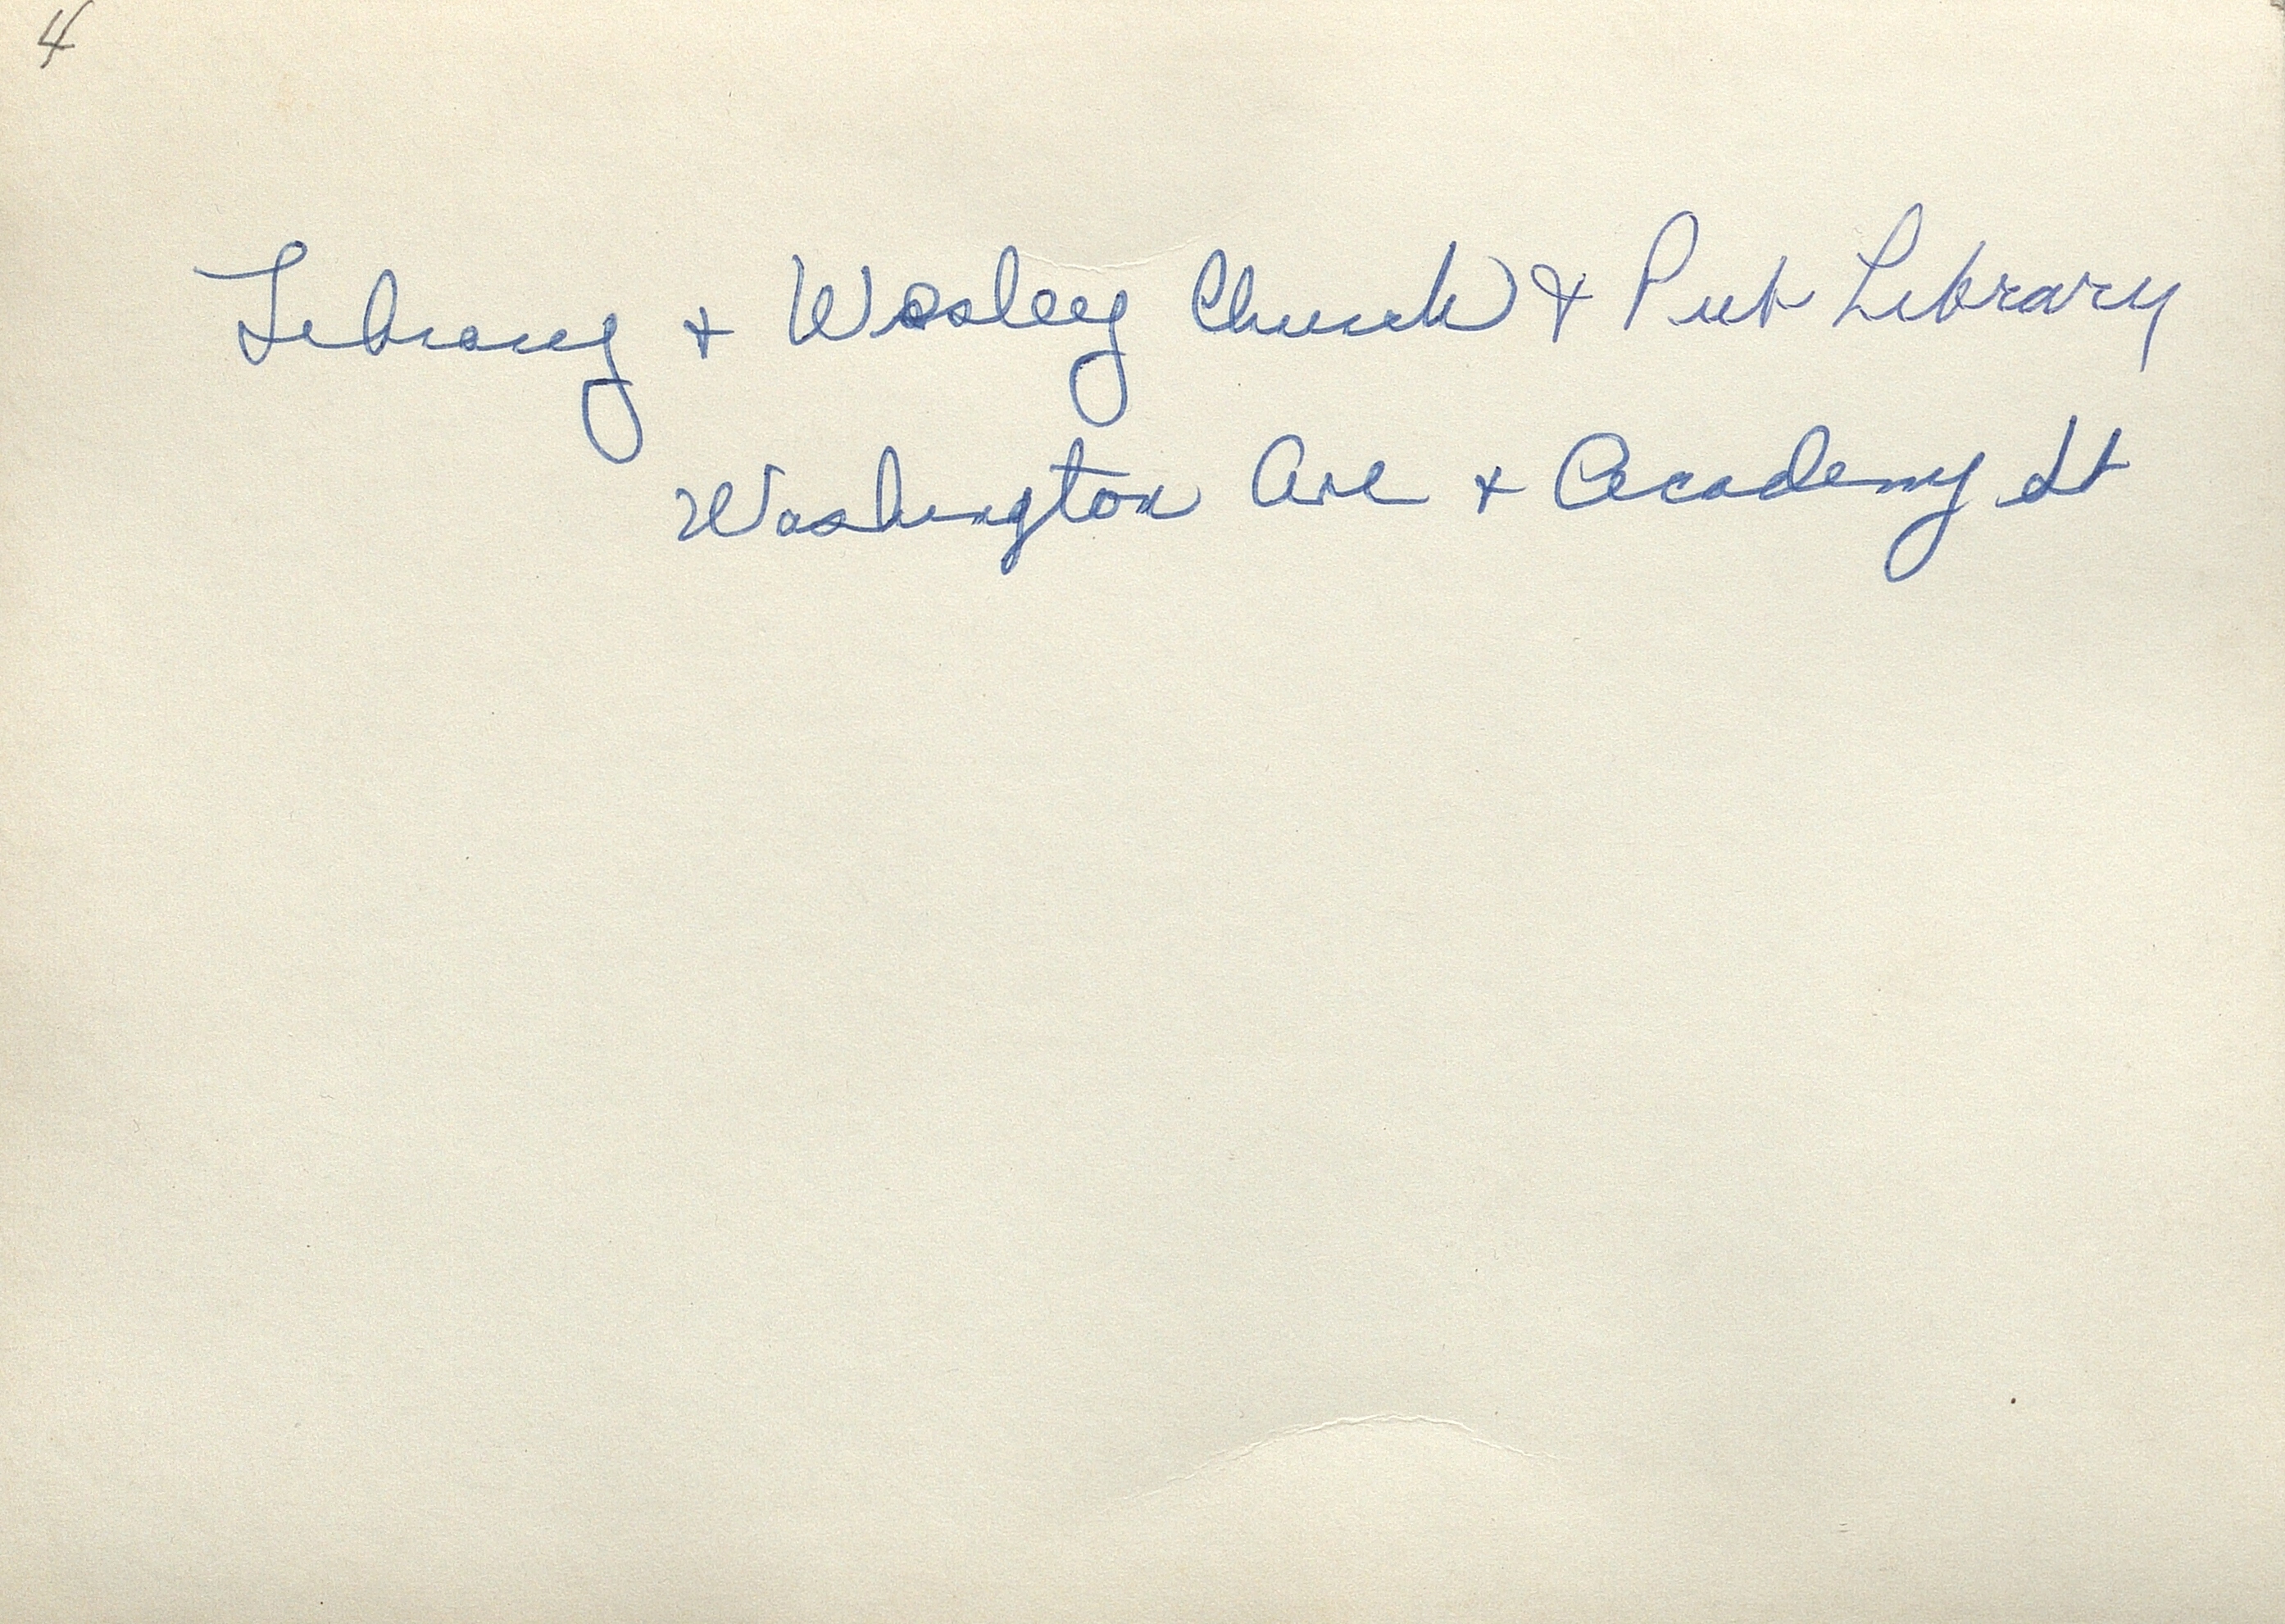 4
Library + Wesley Church & Pub Library
Washington Ave + Academy St